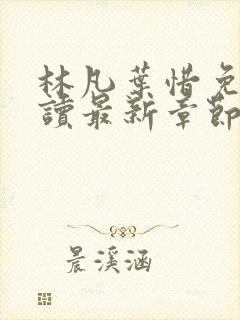 林凡葉惜免
讀最新章節
晨溪涵